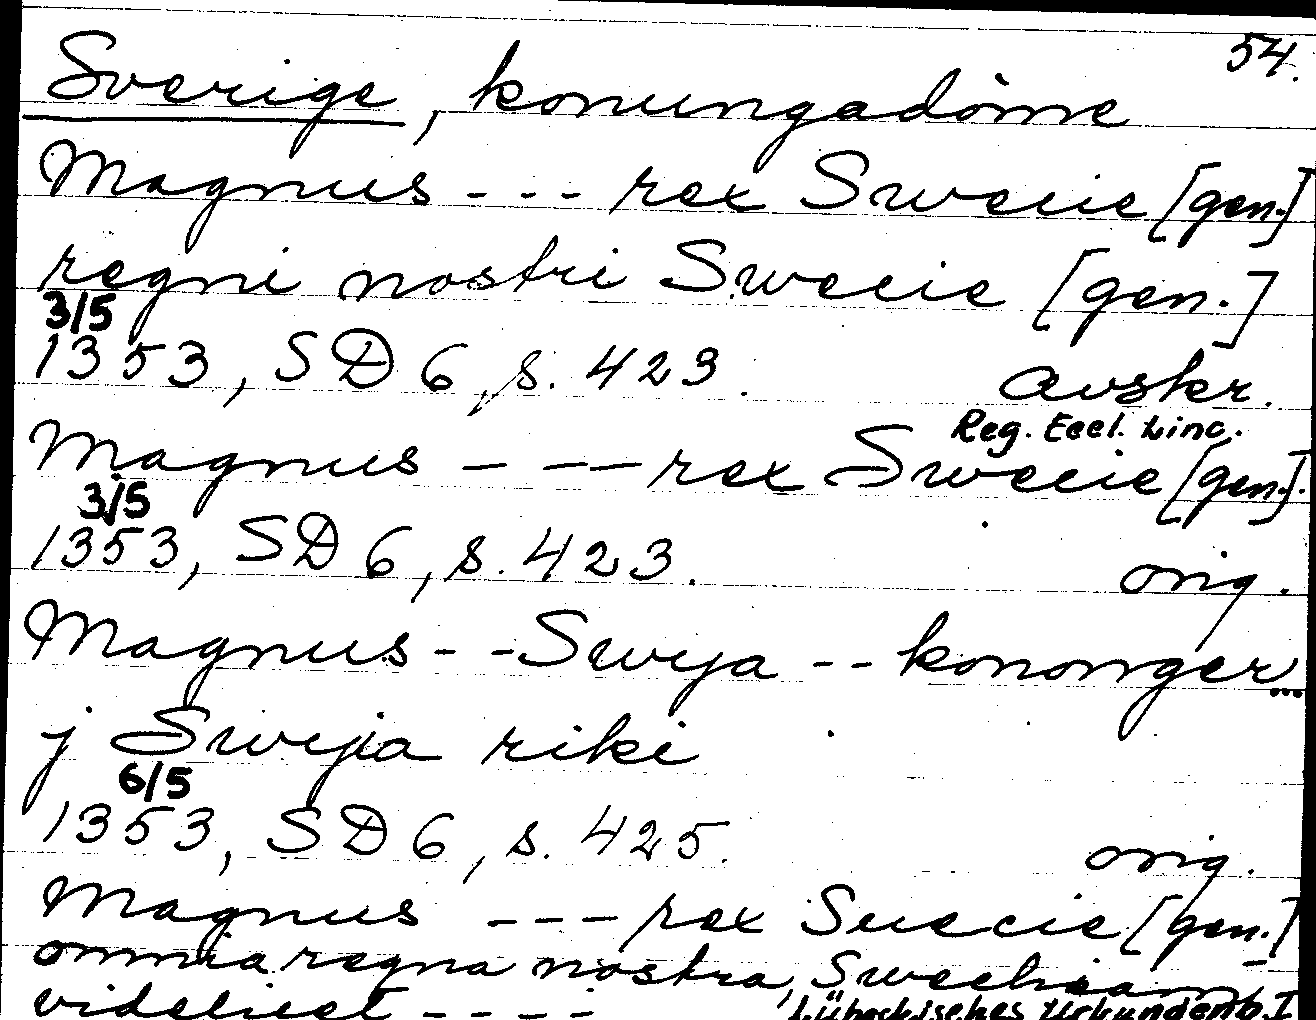 54.
Sverige, konungadöme
Magnus --- rex Swecie [gen.]
regni nostri Swecie [gen.]
3/5
1353, SD 6, s. 423. avskr.
Reg. Eccl. Linc.
Magnus --- rex Swecie [gen.].
3/5
1353, SD 6, s. 423. orig.
Magnus -- Swya -- kononger...
j Swyia riki
6/5
1353, SD 6, s. 425. orig.
Magnus --- rex Suecie [gen.]
omnia regna nostra, Swechiam
videlicet ---- Lübeckisches Urkundenb. I